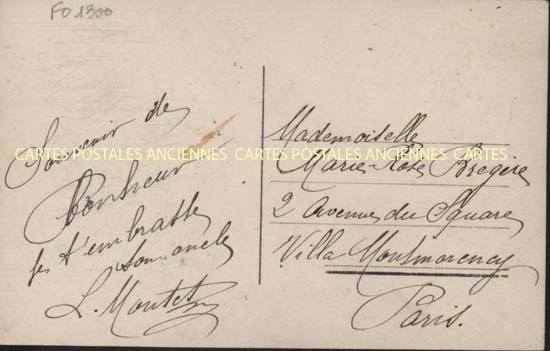 FD 1300
Souvenir de
Bonheur
je t'embrasse
son oncle
L. Moutet
Mademoiselle
Marie-Rose Bregère
2 Avenue du Square
Villa Montmorency
Paris.
CARTES POSTALES ANCIENNES CARTES POSTALES ANCIENNES